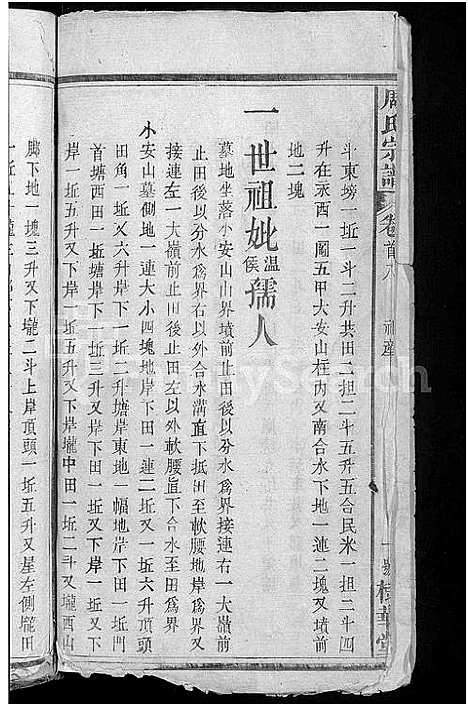 周氏宗譜 卷首八 祀產
斗東塝一坵一斗二升共田二担二斗五升五合民米一担三斗四
升在汞西一圖五甲大安山柱內又南合水下地一連二塊又墳前
地二塊
一世祖妣溫侯孺人
墓地坐落小安山山界墳前止田後以分水為界接連右一大嶺前
止田後以分水為界右以外合水溝直下抵田至軟腰地岸為界
接連左一大嶺前止田後止田左以外軟腰直下合水至田為界
小安山墓側地一連大小四塊地岸下田一連二坵六升頂頭
田角一坵又下岸一坵二升塘岸東地一幅地岸下田一坵門
首塘西田一坵塘岸下田一坵又下岸一坵又下田一坵又下
岸一坵五升又下岸一坵五升又下岸壠中田一坵二斗又壠西山
腳下地一塊三升又下壠二斗上岸頂頭一坵五升又星左側壠田